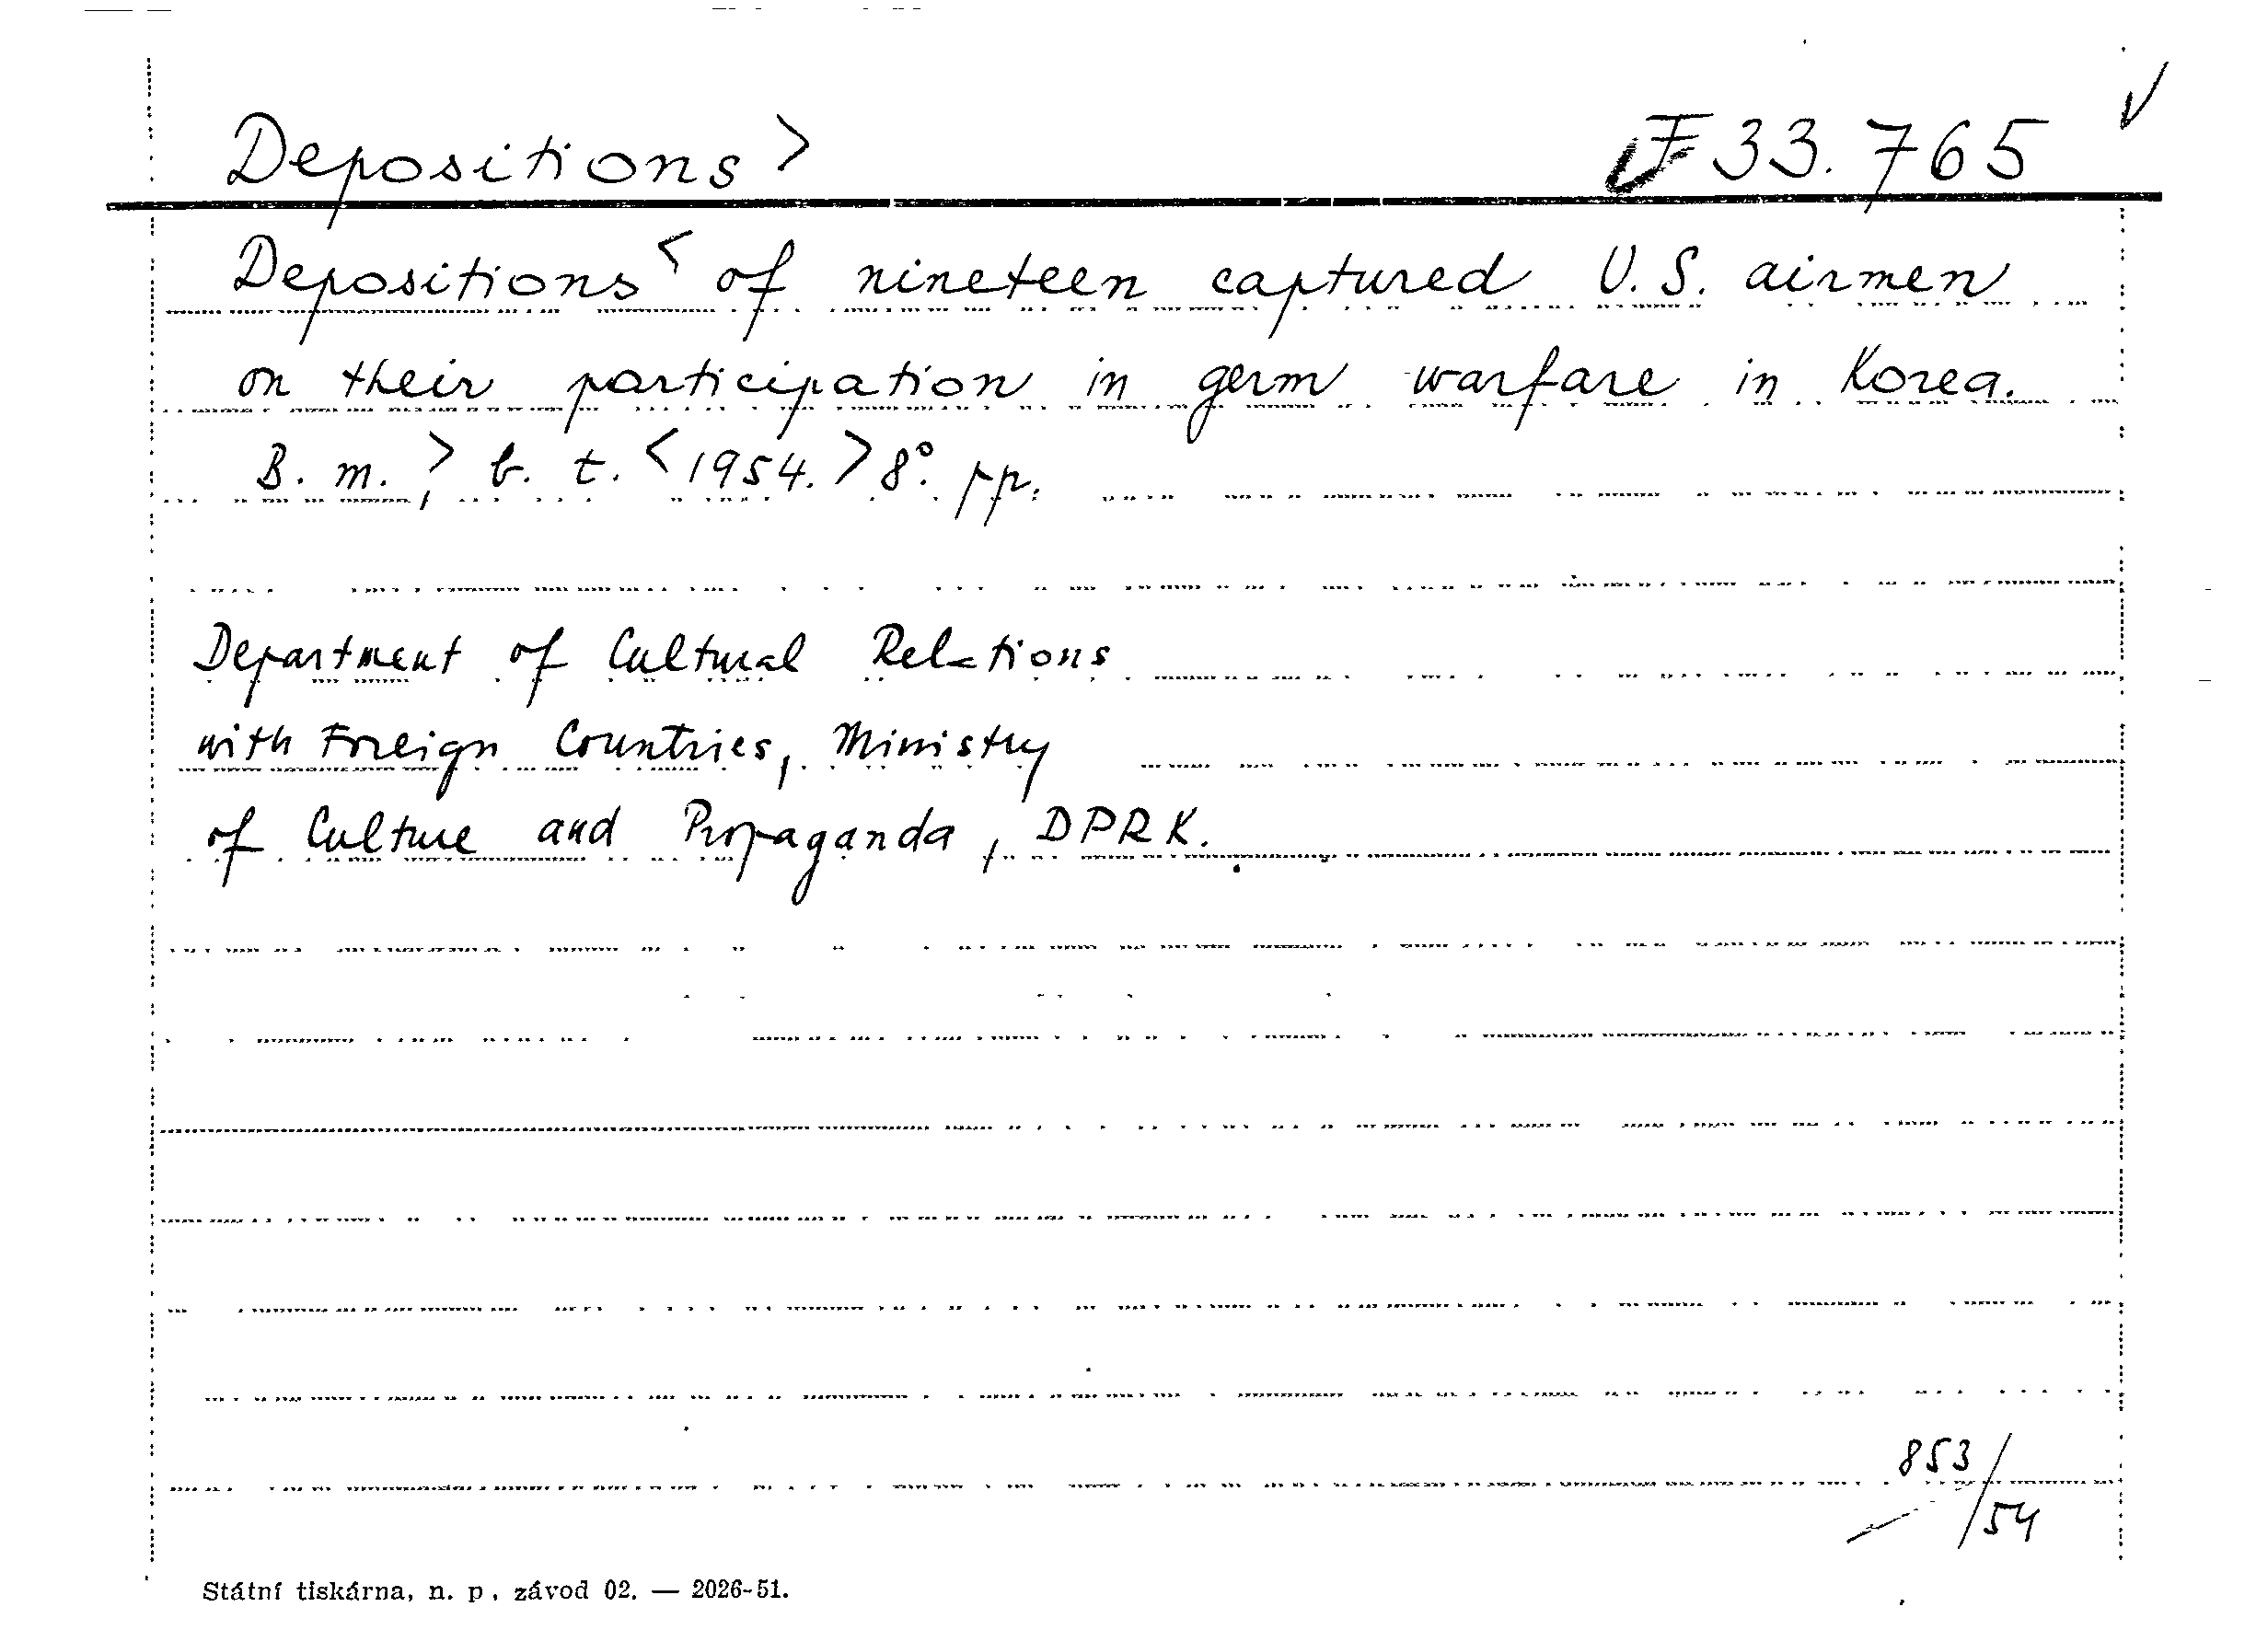 Depositions > F 33.765
Depositions < of nineteen captured U.S. airmen
on their participation in germ warfare in Korea.
B. m., > b. t. < 1954. > 8°. pp.
Department of Cultural Relations
with Foreign Countries, Ministry
of Culture and Propaganda, DPRK.
853/54
Státní tiskárna, n. p., závod 02. — 2026-51.